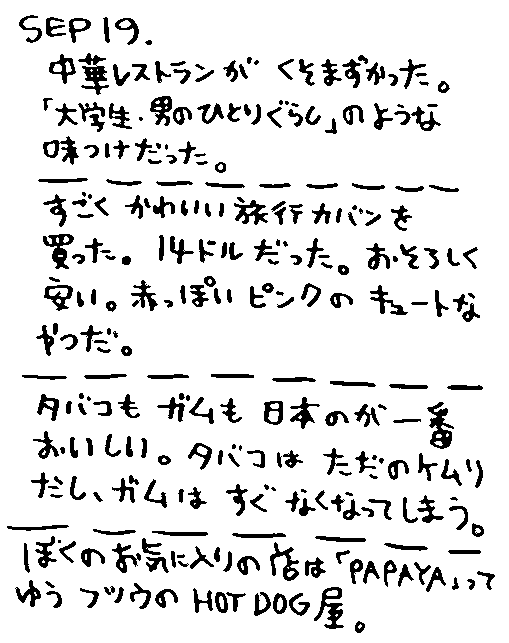 SEP 19.
中華レストランが くそまずかった。
「大学生・男のひとりぐらし」のような
味つけだった。
すごく かわいい 旅行カバンを
買った。 14ドルだった。おそろしく
安い。赤っぽいピンクの キュートな
やつだ。
タバコも ガムも 日本のが 一番
おいしい。タバコは ただのケムリ
だし、ガムは すぐ なくなってしまう。
ぼくのお気に入りの店は「PAPAYA」って
ゆう フツウの HOT DOG屋。